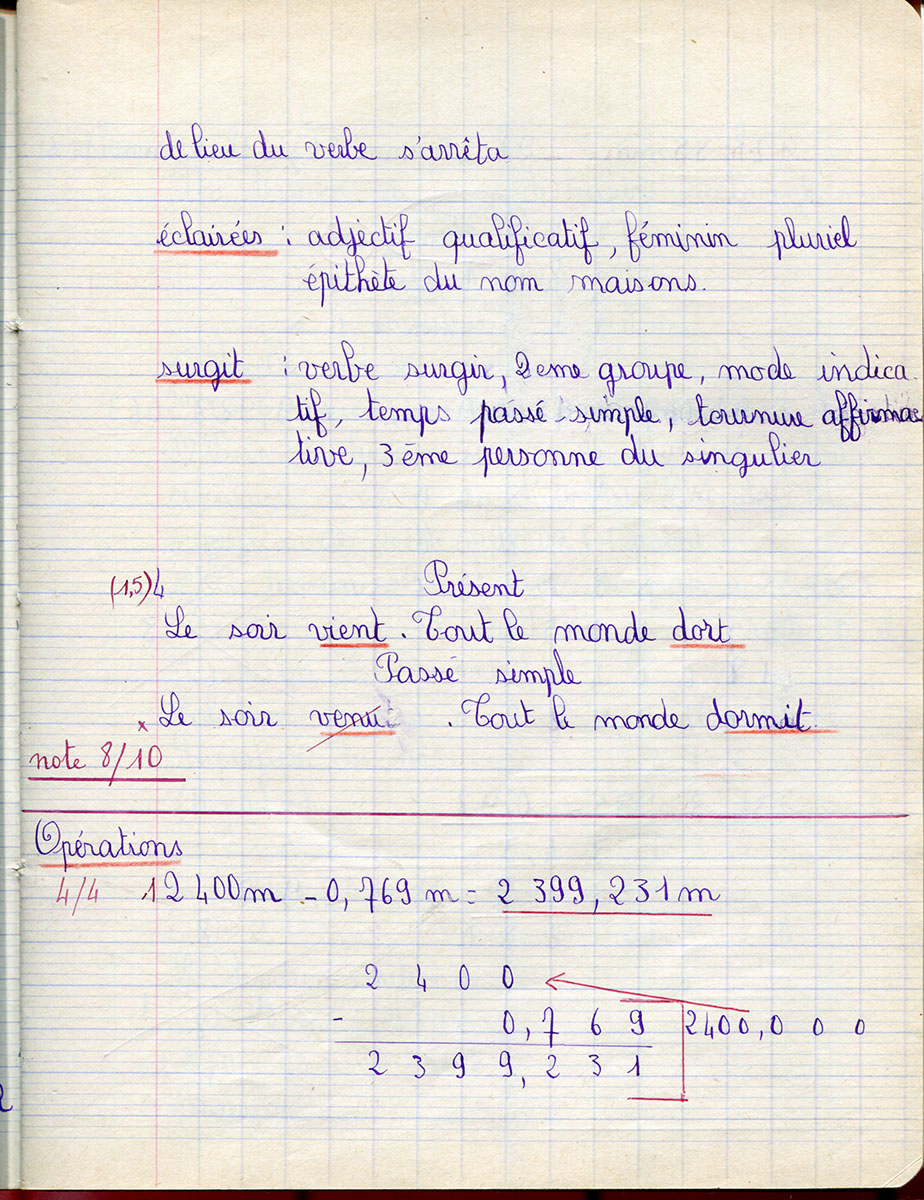 de lieu du verbe s'arrêta
éclairées : adjectif qualificatif, féminin pluriel
épithète du nom maisons.
surgit : verbe surgir, 2eme groupe, mode indica-
tif, temps passé simple, tournure affirma
tive, 3ème personne du singulier
(1,5) 4 Présent
Le soir vient. Tout le monde dort
Passé simple
x Le soir venut . Tout le monde dormit.
note 8/10
Opérations
4/4 1 2 400m - 0,769 m = 2 399,231m
2 4 0 0
- 0,7 6 9 2400,0 0 0
2 3 9 9,2 3 1